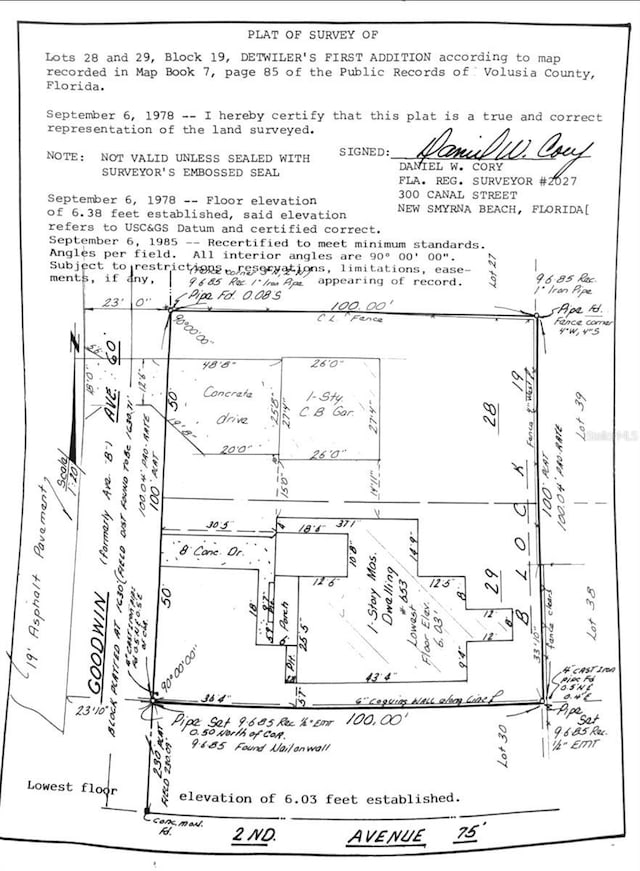 PLAT OF SURVEY OF
Lots 28 and 29, Block 19, DETWILER'S FIRST ADDITION according to map
recorded in Map Book 7, page 85 of the Public Records of Volusia County,
Florida.
September 6, 1978 -- I hereby certify that this plat is a true and correct
representation of the land surveyed.
NOTE: NOT VALID UNLESS SEALED WITH
SURVEYOR'S EMBOSSED SEAL
SIGNED: Daniel W. Cory
DANIEL W. CORY
FLA. REG. SURVEYOR #2027
300 CANAL STREET
NEW SMYRNA BEACH, FLORIDA[
September 6, 1978 -- Floor elevation
of 6.38 feet established, said elevation
refers to USC&GS Datum and certified correct.
September 6, 1985 -- Recertified to meet minimum standards.
Angles per field. All interior angles are 90° 00' 00".
Subject to restrictions, reservations, limitations, ease-
ments, if any, appearing of record.
9·6·85 Rec. 1" Iron Pipe
Pipe Fd. 0.08 S
23' 0"
100.00'
C L Fence
Lot 27
9·6·85 Rec.
1" Iron Pipe
Pipe Fd.
Fence corner
4"W, 4"S
90°00'00"
N
Scale
1":20'
18'0"
12'6"
AVE. 60'
(Formerly Ave. "B")
GOODWIN
19' Asphalt Pavement
50
100' PLAT
100.04' PAD-RATE
48'8"
Concrete
drive
20'0"
19'8"
25'8"
27'4"
26'0"
1-Sty.
C B Gar.
27'4"
26'0"
15'0"
28
19
Fence 4" West
Lot 39
100' PLAT
100.04' PAD-RATE
BLOCK
30.5
8' Conc. Dr.
18'6"
37'1
10'8
14'9"
12'6
12'5"
8
12
8
12
9'4"
1-Story Mas.
Dwelling
# 653
Lowest
Floor Elev.
6.03'
29
18'
P. Porch
25'5"
PH
43'4"
5'
36'4"
50
90°00'00"
33'10"
fence clears
Lot 38
6" Coquina WALL along Line
4" CAST Iron
pipe Fd
0.5'N &
0.4' E
Pipe
Set
9·6·85 Rec.
½" EMT
23'10"
Pipe Set 9·6·85 Rec. ½" EMT
100.00'
0.50 North of COR.
9·6·85 Found Nail on wall
Lot 30
230 PLAT
FIELD 230.09
Lowest floor elevation of 6.03 feet established.
Conc. mon.
Fd.
2 ND. AVENUE 75'